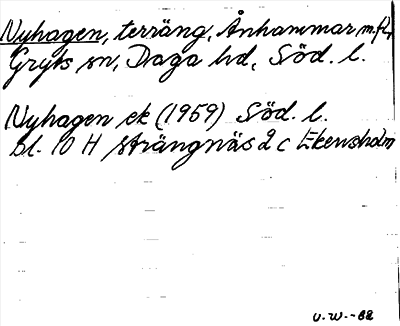 Nyhagen, terräng, Ånhammar, m.fl.,
Gryts sn, Daga hd, Söd. l.
Nyhagen ek (1959) Söd. l.
bl. 10 H Strängnäs 2 c Ekensholm
U.W.-82